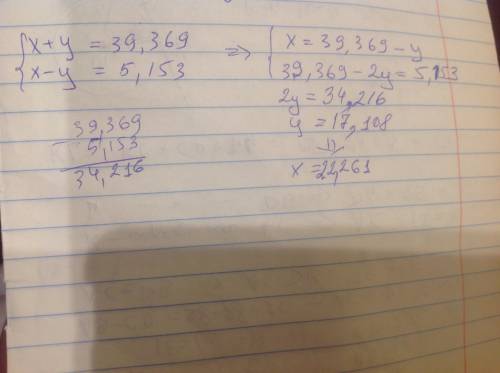 {x+y = 39,369
{x-y = 5,153
=> {x = 39,369 - y
{39,369 - 2y = 5,153
2y = 34,216
y = 17,108
⇓
x = 22,261
39,369
- 5,153
34,216